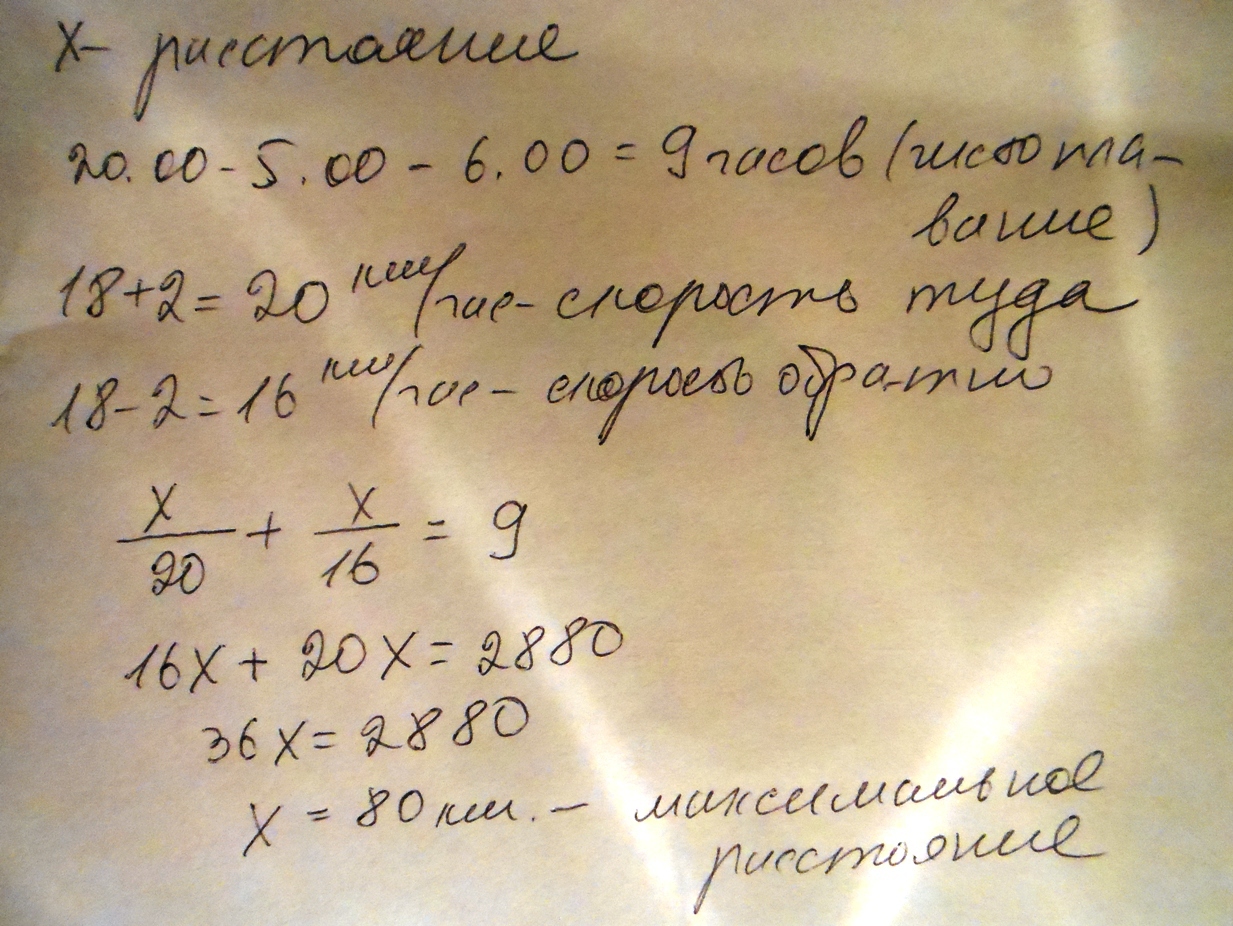 x – расстояние
20.00 - 5.00 - 6.00 = 9 часов (чисто пла-
вание)
18+2=20 км/час – скорость туда
18-2=16 км/час – скорость обратно
x/20 + x/16 = 9
16x + 20x = 2880
36x = 2880
x = 80 км. – максимальное
расстояние